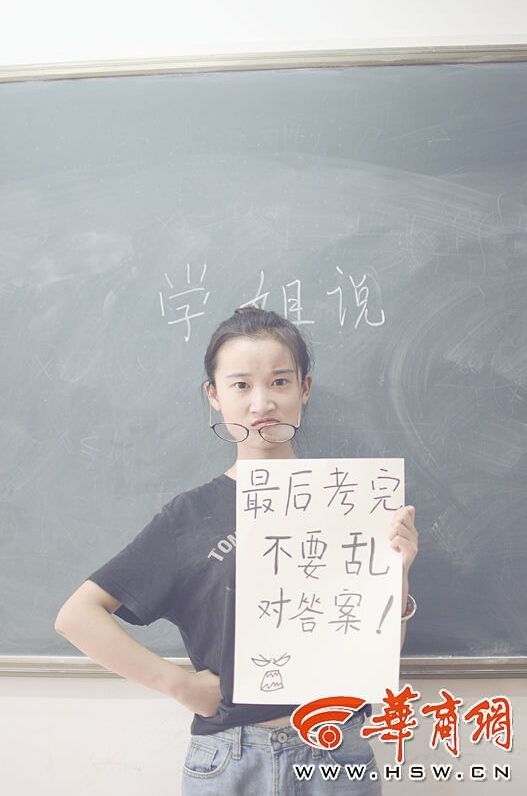 学姐说
最后考完
不要乱
对答案！
TOM
華商網
WWW.HSW.CN